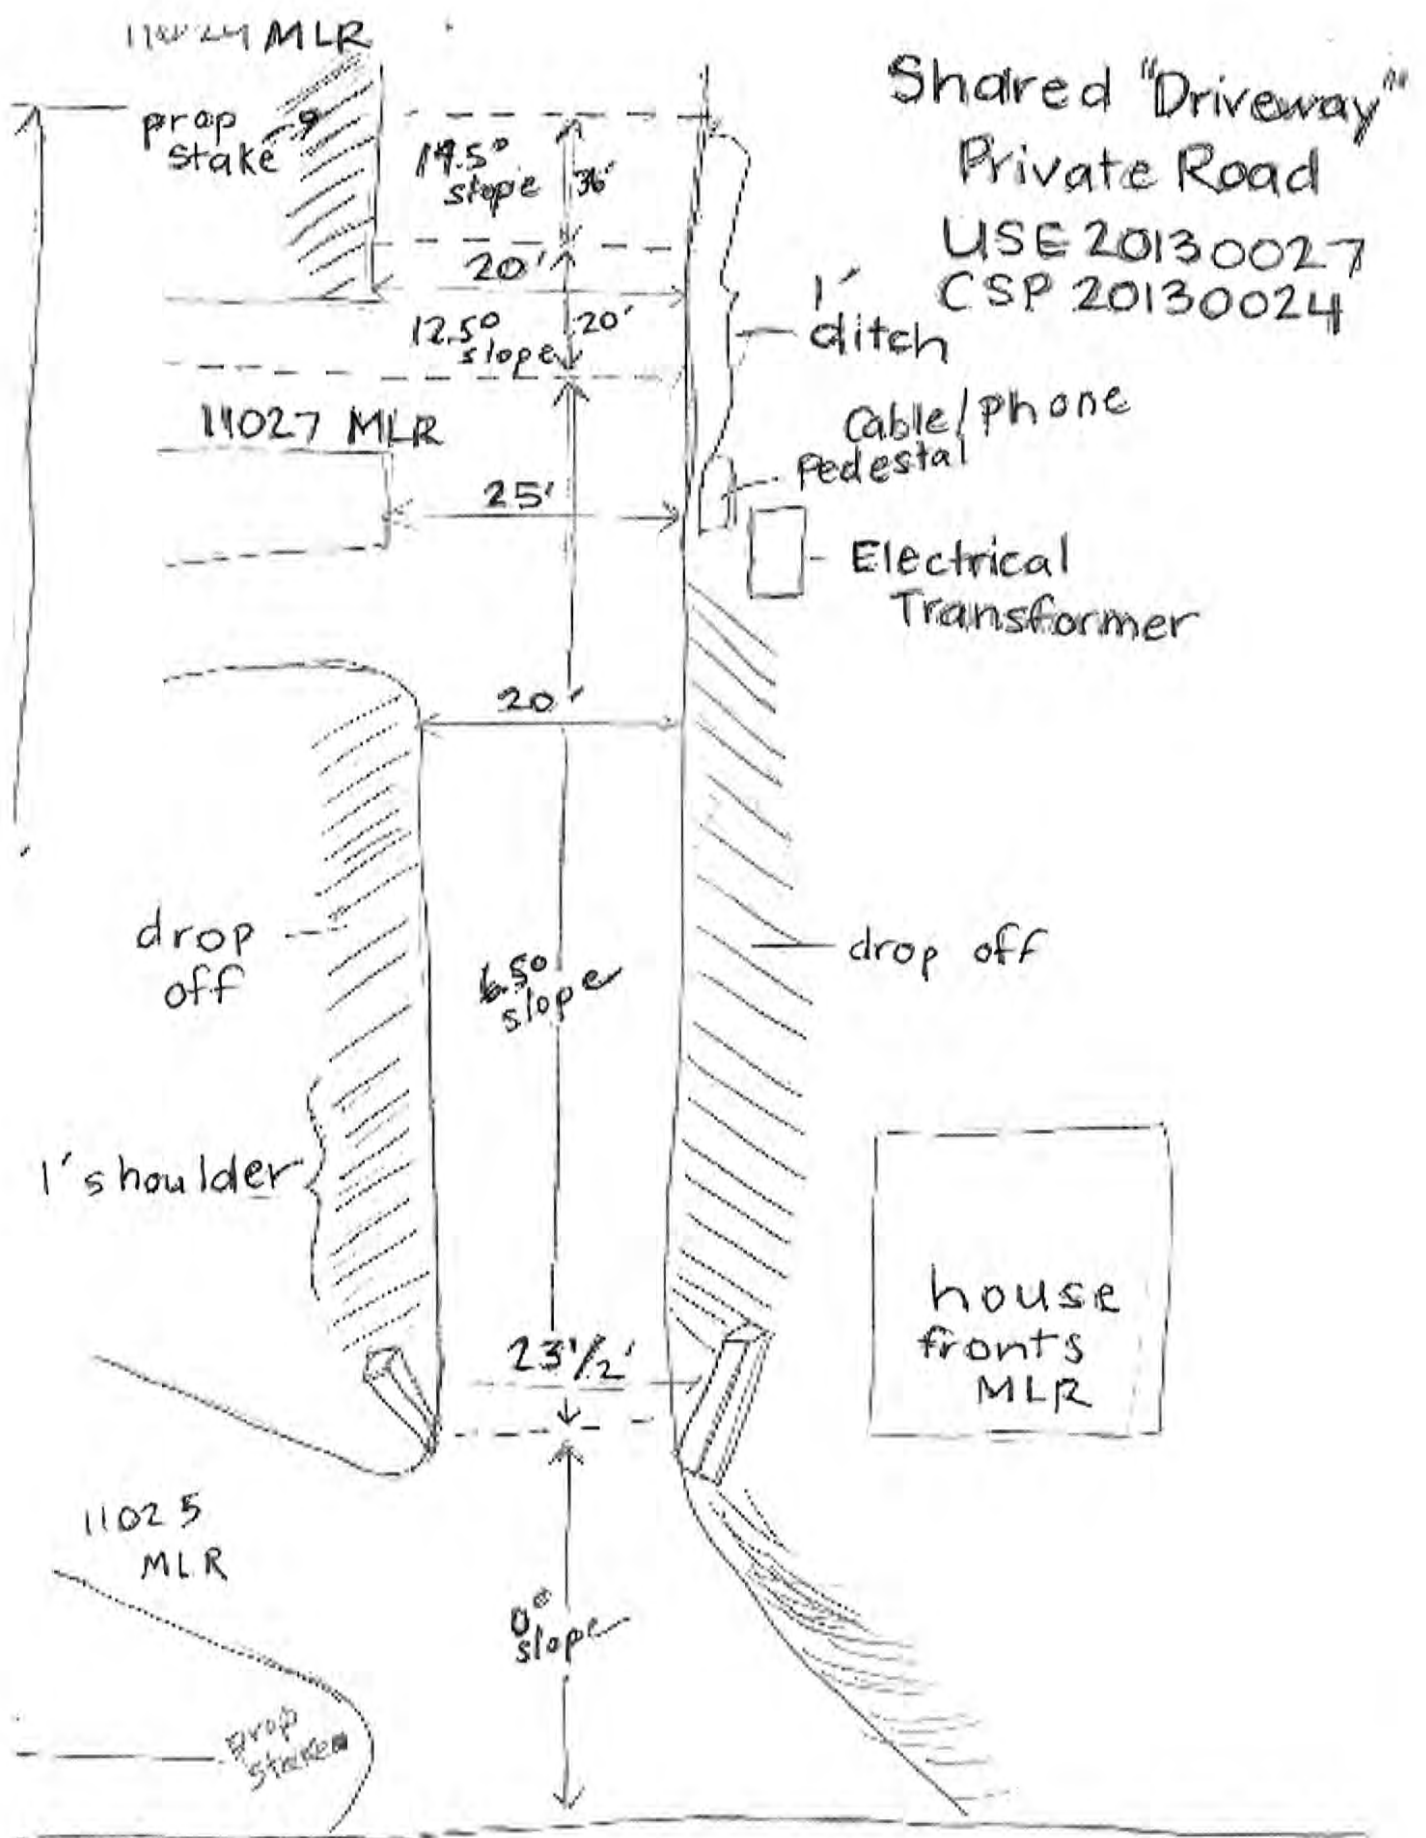 MLR
Shared "Driveway"
Private Road
USE 20130027
CSP 20130024
prop
stake
slope
36'
20'
12.5°
slope
20'
1'
ditch
11027 MLR
Cable/phone
Pedestal
25'
Electrical
Transformer
20'
drop
off
6.5°
slope
drop off
1' shoulder
house
fronts
MLR
23'/2'
11025
MLR
0°
slope
prop
stake